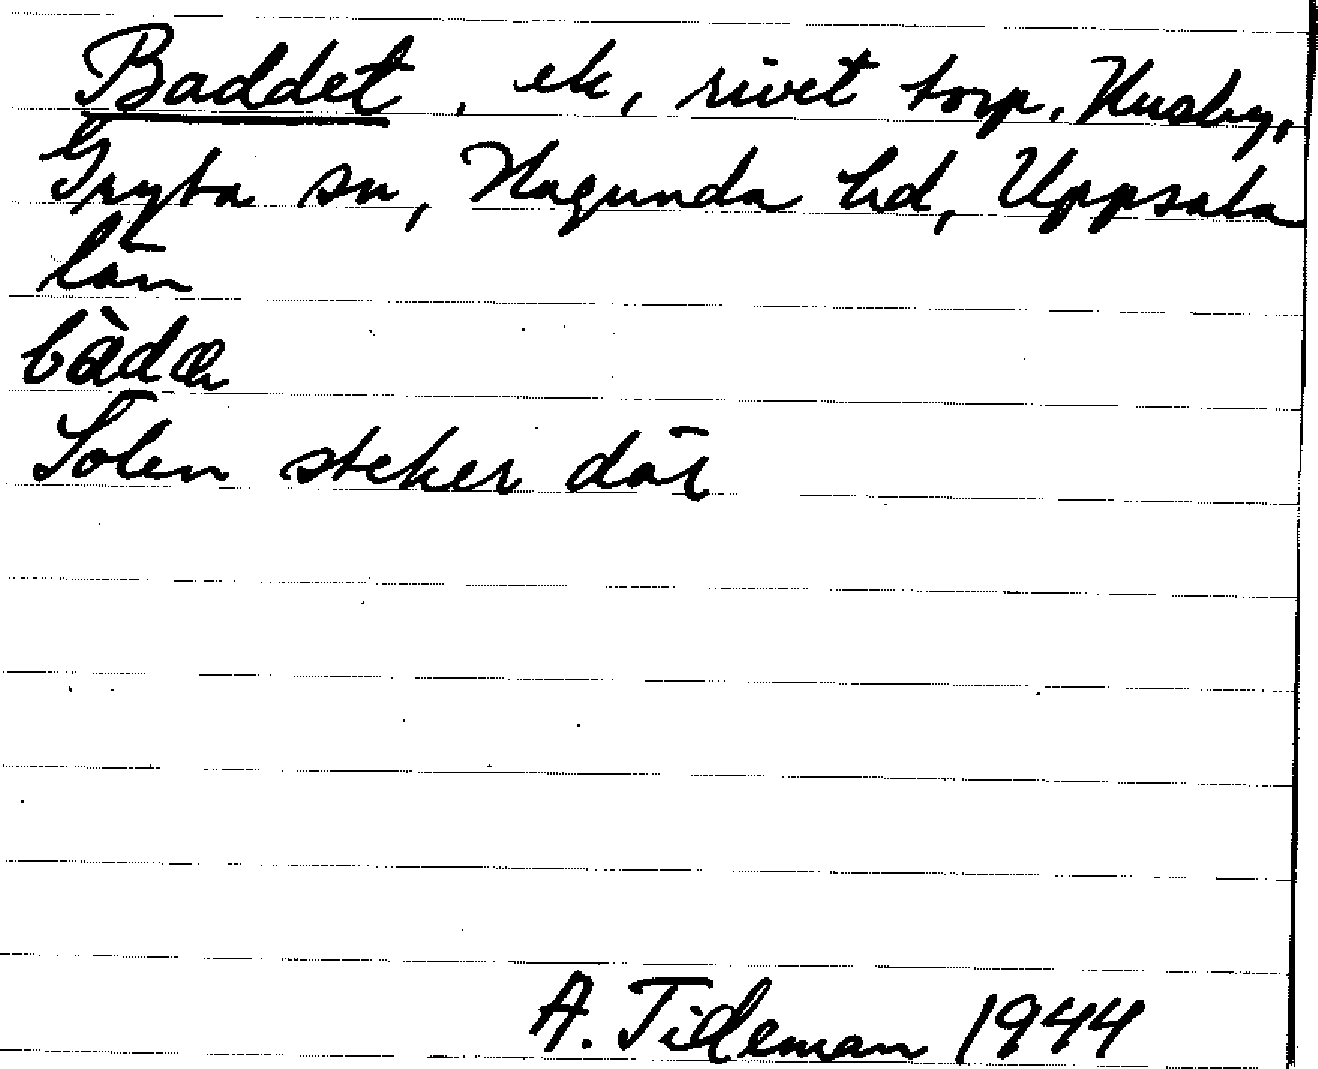 Baddet, ek, rivet torp, Husby,
Gryta sn, Hagunda hd, Uppsala
län
bàdæ
Solen steker där
A. Tideman 1944